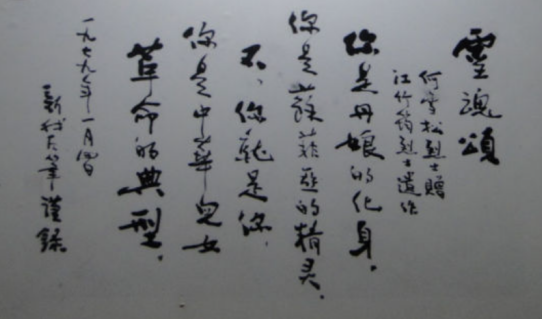 靈魂頌
何雪松烈士贈
江竹筠烈士遺作
你是丹娘的化身.
你是蘇菲亞的精灵.
不,你就是你.
你是中華兒女
革命的典型.
一九七九年一月日
左筆謹錄